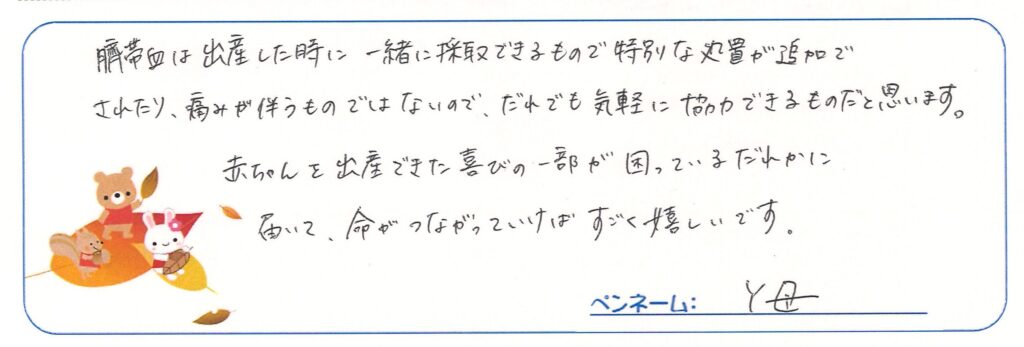 臍帯血は出産した時に一緒に採取できるもので特別な処置が追加で
されたり、痛みが伴うものではないので、だれでも気軽に協力できるものだと思います。
赤ちゃんを出産できた喜びの一部が困っているだれかに
届いて、命がつながっていけばすごく嬉しいです。
ペンネーム: Y母